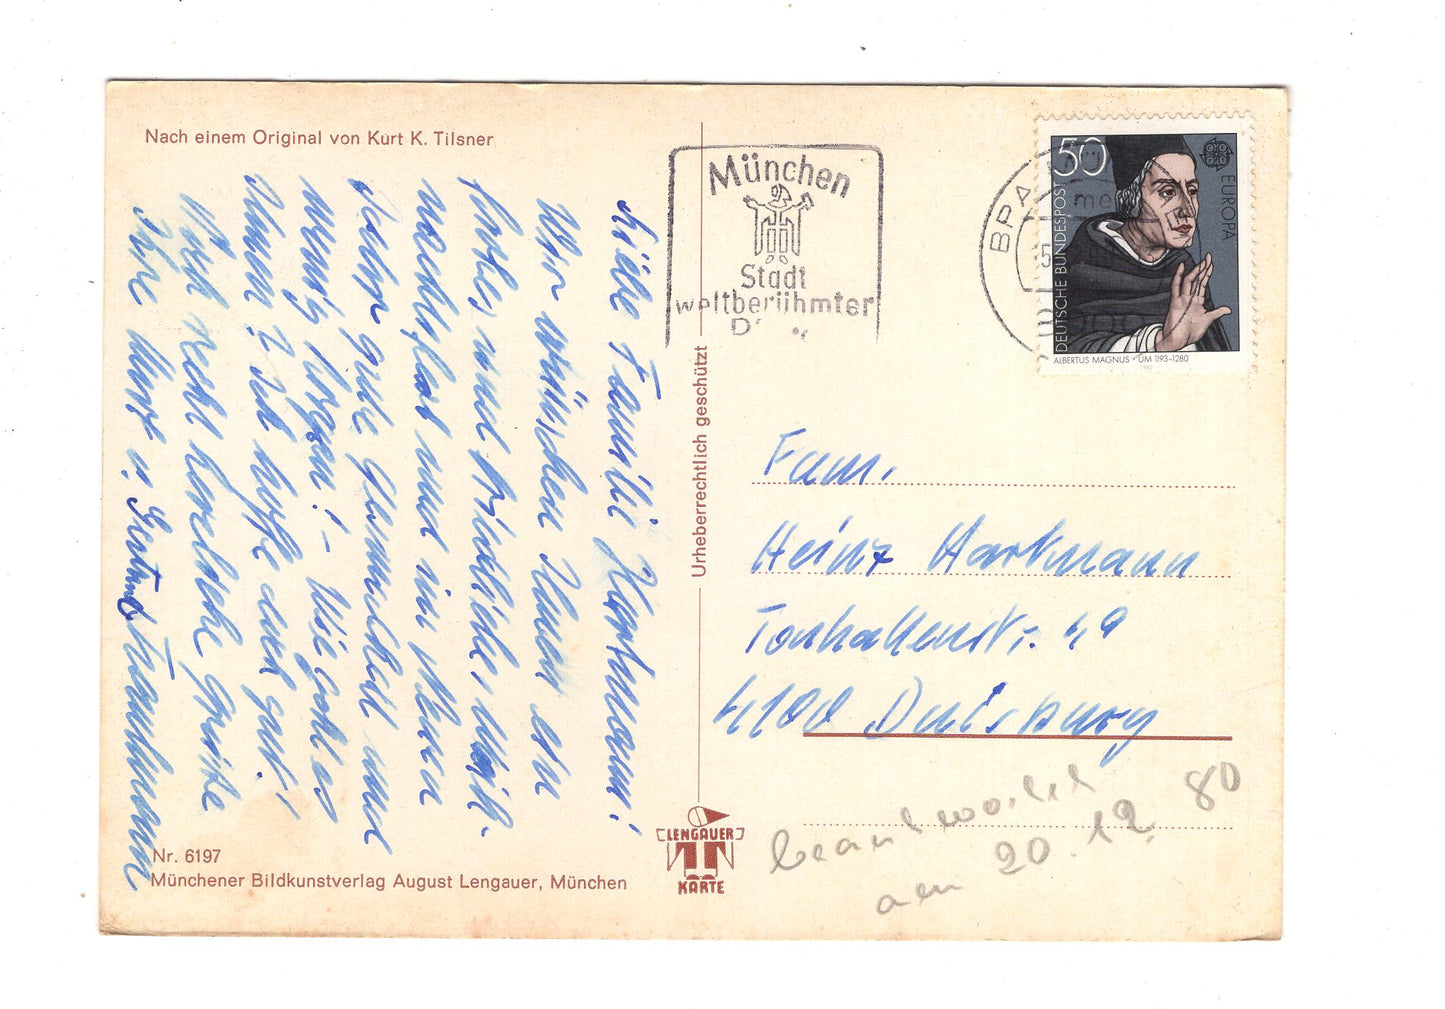 Nach einem Original von Kurt K. Tilsner
Liebe Familie Hartmann!
Wir wünschen Ihnen ein
frohes und friedliches Weih-
nachtsfest und im Neuen
Jahr gute Gesundheit und
wenig Sorgen! – Wie geht es
Ihnen? Ich hoffe doch gut!
Noch recht herzliche Grüße
Ihre u.
Nr. 6197
Münchener Bildkunstverlag August Lengauer, München
Urheberrechtlich geschützt
LENGAUER
KARTE
München
Stadt
weltberühmter
BPA
50
EUROPA
DEUTSCHE BUNDESPOST
ALBERTUS MAGNUS · UM 1193-1280
1980
Fam.
Heinz Hartmann
Tonhallenstr. 49
4100 Duisburg
beantwortet
am 20.12.80